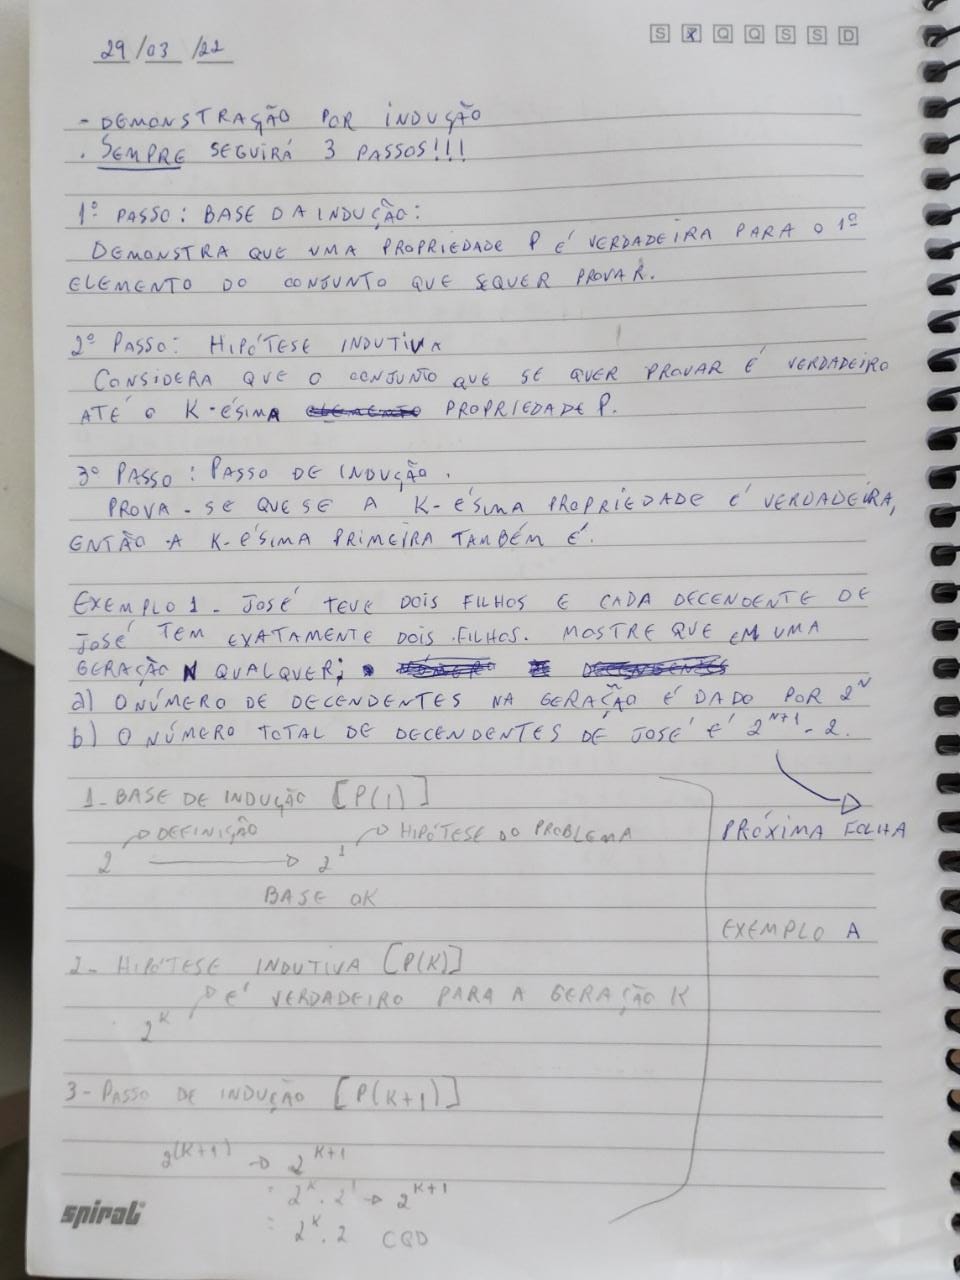 29/03/22
S T Q Q S S D
- DEMONSTRAÇÃO POR INDUÇÃO
. SEMPRE SEGUIRÁ 3 PASSOS!!!
1º PASSO: BASE DA INDUÇÃO:
DEMONSTRA QUE UMA PROPRIEDADE P É VERDADEIRA PARA O 1º
ELEMENTO DO CONJUNTO QUE SEQUER PROVAR.
2º PASSO: HIPÓTESE INDUTIVA
CONSIDERA QUE O CONJUNTO QUE SE QUER PROVAR É VERDADEIRO
ATÉ O K-ÉSIMA ELEMENTO PROPRIEDADE P.
3º PASSO: PASSO DE INDUÇÃO.
PROVA-SE QUE SE A K-ÉSIMA PROPRIEDADE É VERDADEIRA,
ENTÃO A K-ÉSIMA PRIMEIRA TAMBÉM É.
EXEMPLO 1 - JOSÉ TEVE DOIS FILHOS E CADA DECENDENTE DE
JOSÉ TEM EXATAMENTE DOIS FILHOS. MOSTRE QUE EM UMA
GERAÇÃO N QUALQUER; NÚMERO DECENDENTES
a) O NÚMERO DE DECENDENTES NA GERAÇÃO É DADO POR 2^N
b) O NÚMERO TOTAL DE DECENDENTES DE JOSÉ É 2^N+1 - 2.
PRÓXIMA FOLHA
1- BASE DE INDUÇÃO [P(1)]
DEFINIÇÃO HIPÓTESE DO PROBLEMA
2 → 2^1
BASE OK
EXEMPLO A
2- HIPÓTESE INDUTIVA [P(K)]
É VERDADEIRO PARA A GERAÇÃO K
2^K
3- PASSO DE INDUÇÃO [P(K+1)]
2^(K+1) → 2^K+1
= 2^K . 2^1 → 2^K+1
= 2^K . 2 CQD
spiral